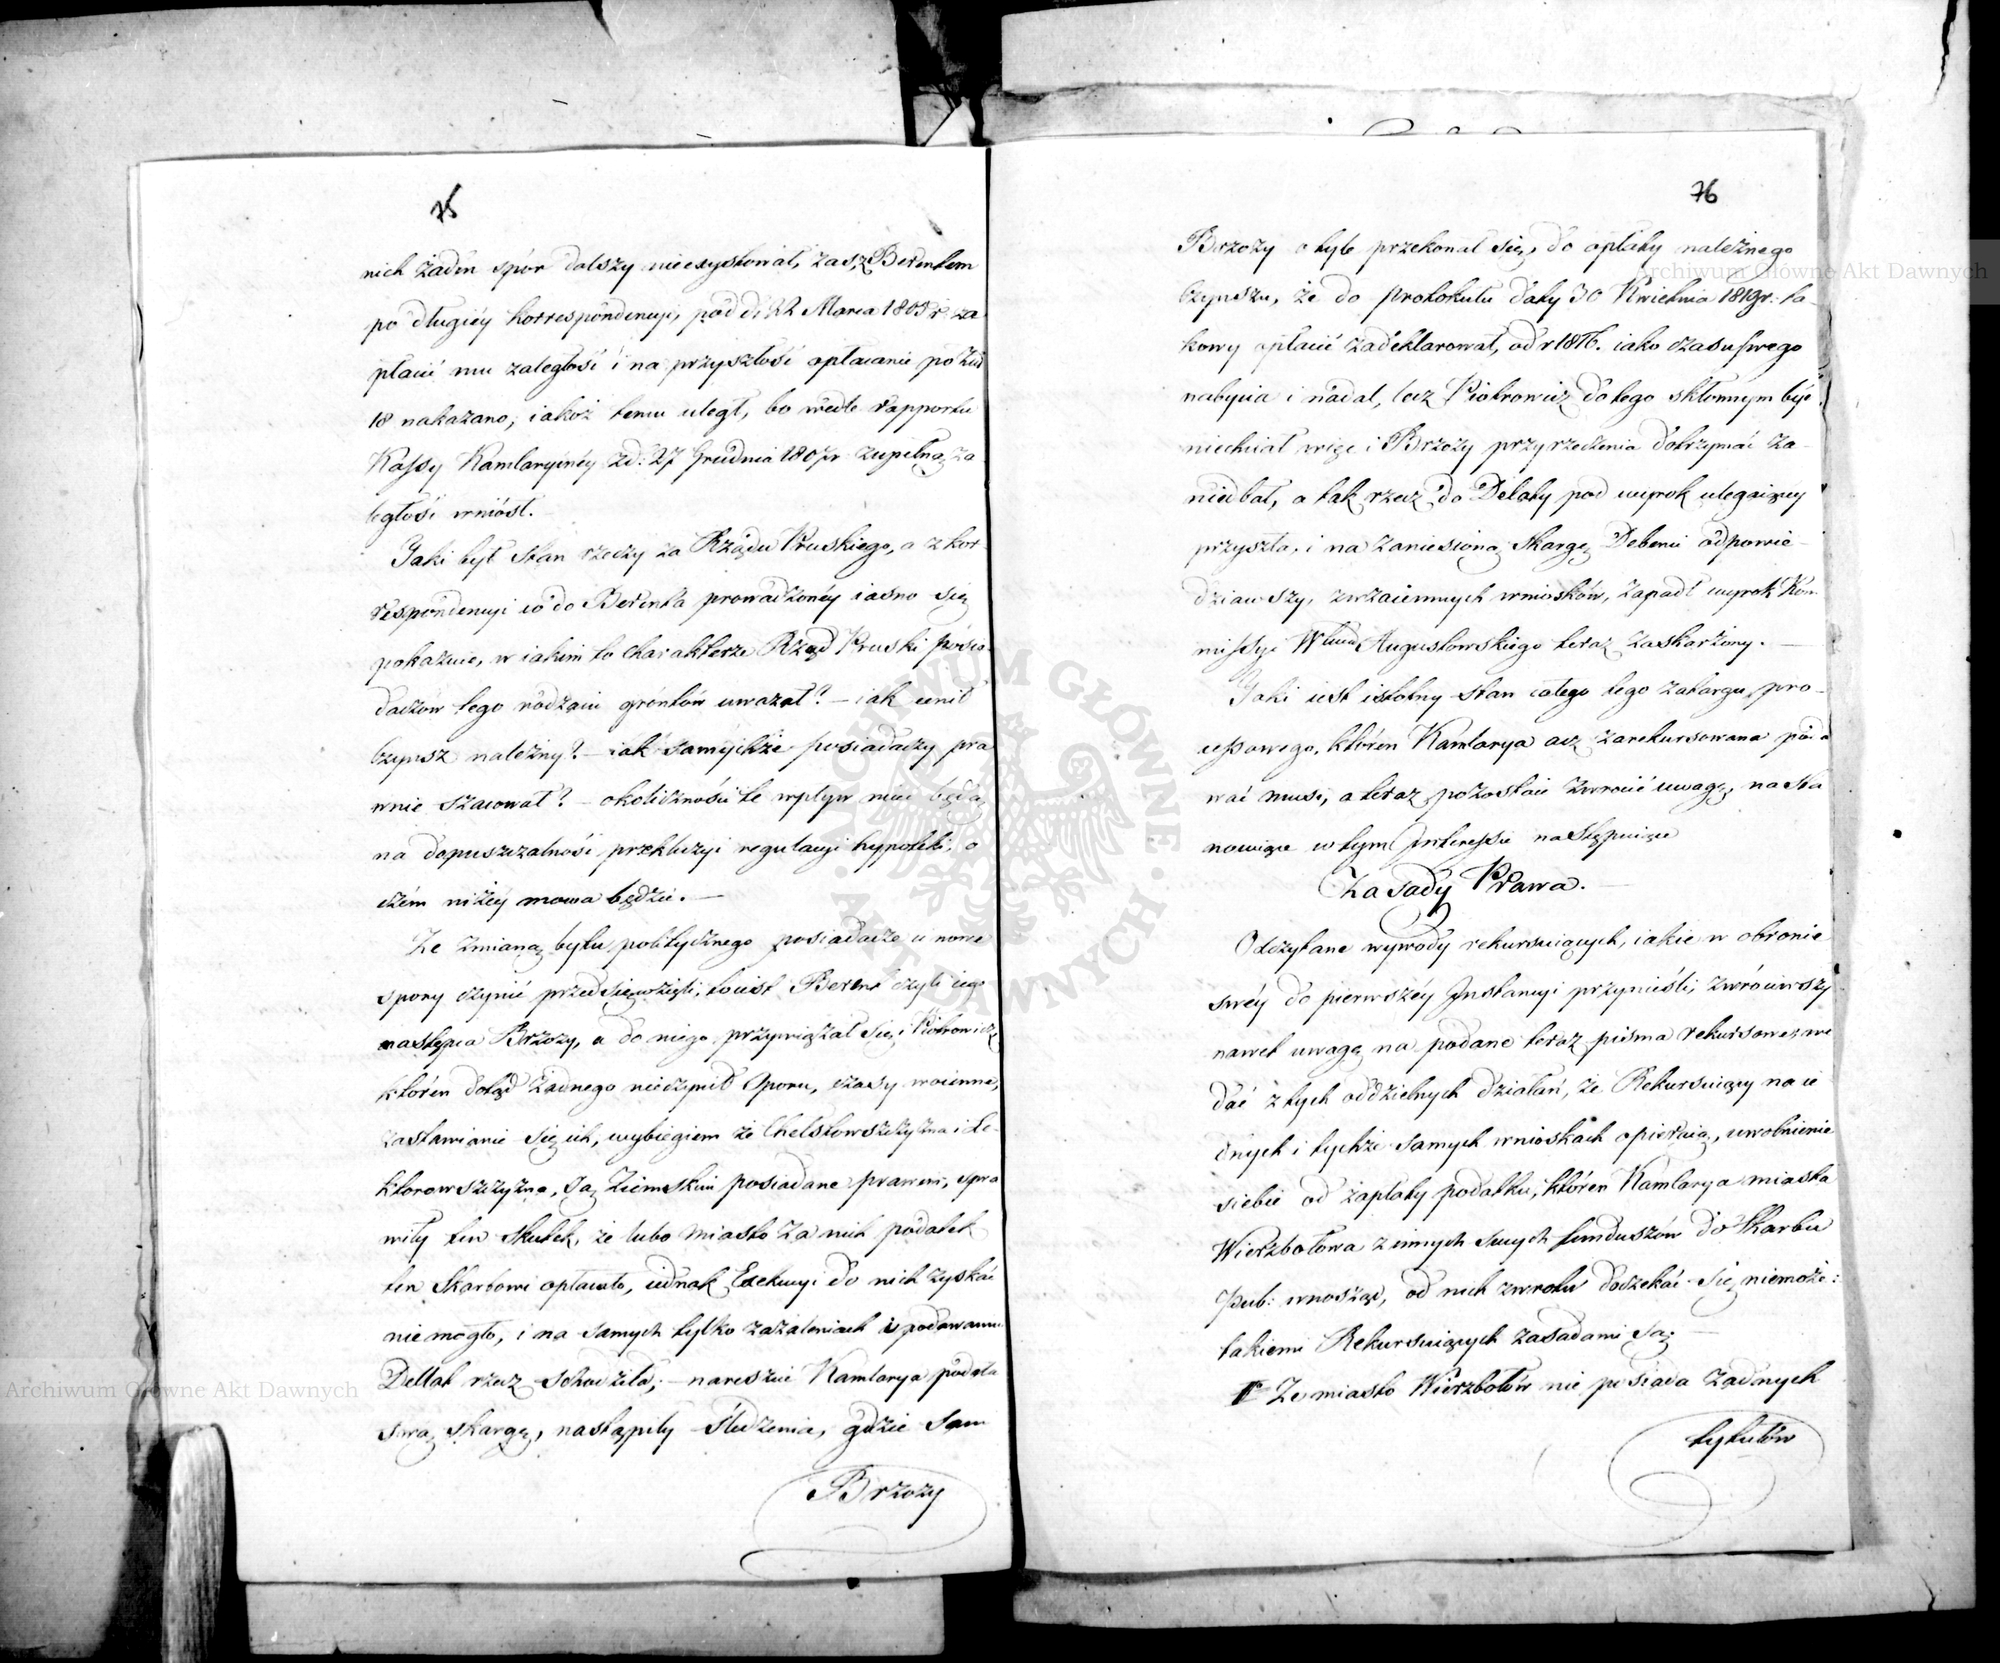 75
nich żaden spór dalszy nieexystował, zaś z Berentem
po długiéy korrespondencyi, pod d. 22 Marca 1805 r. za
płacić mu zaległość i na przyszłość opłacanie po
18 nakazano, iakoż temu uległ, bo wedle rapportu
Kassy Kamlaryinéy zd: 27 Grudnia 1807 r zupełną za
ległość wniósł.
Jaki był stan rzeczy za Rządu Pruskiego, a z kor-
respondencyi co do Berenta prowadzonéy iasno się
pokazuie, w iakim to charakterze Rząd Pruski posia-
daczów tego rodzaiu gróntów uważał? – iak cenił
czynsz należny? – iak samychże posiadaczy pra
wnie szacował? – okoliczności te wpływ mieć będą
na dopuszczalność prekluzyi regulacyi hypoteki, o
czém niżéy mowa będzie. —
Ze zmianą bytu politycznego posiadacze ci nowe
spory czynić przedsięwzięli, to iest Berent czyli iego
następca Brzozy, a do niego przywiązał się i Piotrowicz
któren dotąd żadnego nieczynił sporu, czasy woienne,
zastawianie się ich, wybiegiem że Chelstowszczyzna i Le-
ktorowszczyzna, są Ziemskim posiadane prawem, spra
wiły ten skutek, że lubo miasto za nich podatek
ten Skarbowi opłacało, iednak Exekucyi do nich zyskać
niemogło, i na samych tylko zażaleniach i podawaniu
Dellat rzecz schodziła; – nareszcie Kamlarya podała
swą skargę, nastąpiły śledzenia, gdzie sam
Brzozy
76
Brzozy o tyle przekonał się, do opłaty należnego
czynszu, że do protokułu daty 30 Kwietnia 1819 r. ta-
kowy opłacić zadeklarował, od r 1816. iako czasu swego
nabycia i nadal, lecz Piotrowicz do tego skłonnym być
niechciał więc i Brzozy przyrzeczenia dotrzymać za-
niedbał, a tak rzecz do Delaty pod wyrok ulegaiący
przyszła, i na zaniesioną skargę Debenci odpowie-
dziawszy, z wzaiemnych wniosków, zapadł wyrok Kom
missyi Wdtwa Augustowskiego teraz zaskarżony. —
Jaki iest istotny stan całego tego zatargu pro-
cessowego, któren Kamlarya acz zarekursowana poda
wać musi, a teraz pozostaie zwrócić uwagę, na sta
nowiące w tym Interessie następuiące
Zasady Prawa. —
Odczytane wywody rekursuiących, iakie w obronie
swéy do pierwszéy Instancyi przynieśli, zwróciwszy
nawet uwagę na podane teraz pisma rekursowe, wi
dać z tych oddzielnych działań, że Rekursuiący na ie
dnych i tychże samych wnioskach opieraią, uwolnienie
siebie od zapłaty podatku, któren Kamlarya miasta
Wierzbołowa z innych swych funduszów do Skarbu
Pub: wnosząc, od nich zwrotu doczekać się niemoże:
takiemi Rekursuiących zasadami są: —
1° Ze miasto Wierzbołów nie posiada żadnych
tytułów
Archiwum Główne Akt Dawnych
Archiwum Główne Akt Dawnych
ARCHIWUM GŁÓWNE · AKT DAWNYCH ·